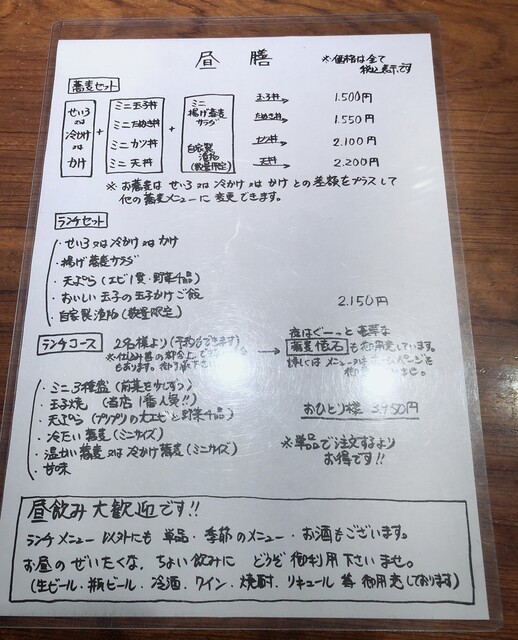 昼膳
※価格は全て
税込表示です
蕎麦セット
せいろ
又は
冷かけ
又は
かけ
+
ミニ玉子丼
ミニたぬき丼
ミニカツ丼
ミニ天丼
+
ミニ
揚げ蕎麦
サラダ
自家製
漬物
(数量限定)
玉子丼 → 1.500円
たぬき丼 → 1.550円
カツ丼 → 2.100円
天丼 → 2.200円
※お蕎麦は せいろ 又は 冷かけ 又は かけ との差額をプラスして
他の蕎麦メニューに変更できます。
ランチセット
・せいろ 又は 冷かけ 又は かけ
・揚げ蕎麦サラダ
・天ぷら(エビ1貫・野菜4品)
・おいしい玉子の玉子かけご飯
・自家製漬物(数量限定)
2.150円
ランチコース
2名様より(予約もできます)
※仕込み等の都合上
もあります。
→
夜はぐーっと豪華な
蕎麦懐石 も御用意しています。
詳しくはメニュー ページを
ませ。
・ミニ3種盛(前菜を少しずつ)
・玉子焼(当店1番人気!!)
・天ぷら(プリプリの大エビと野菜4品)
・冷たい蕎麦(ミニサイズ)
・温かい蕎麦又は冷かけ蕎麦(ミニサイズ)
・甘味
おひとり様 3.950円
※単品で注文するより
お得です!!
昼飲み大歓迎です!!
ランチメニュー以外にも 単品・季節のメニュー・お酒もございます。
お昼のぜいたくな、ちょい飲みに どうぞ御利用下さいませ。
(生ビール・瓶ビール・冷酒・ワイン・焼酎・リキュール等 御用意しております)